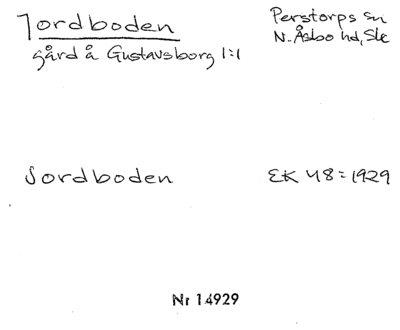 Jordboden
Perstorps sn
gård å Gustavsborg 1:1
N. Åsbo hd, Sk
Jordboden
EK 48 = 1929
Nr 14929